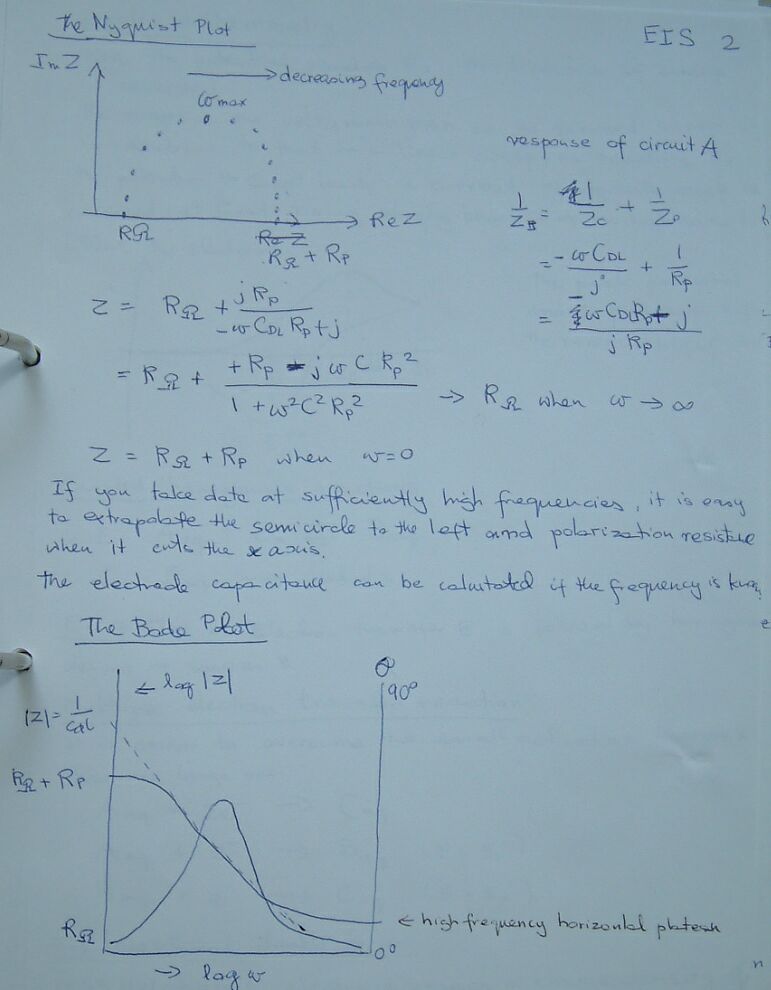 The Nyquist Plot
EIS 2
Im Z
decreasing frequency
ωmax
Re Z
RΩ
Re Z
RΩ + Rp
response of circuit A
1/Z = 1/Zc + 1/Zp
= -ωCDL/j + 1/Rp
= -ωCDLRp + j / j Rp
Z = RΩ + j Rp / -ωCDL Rp + j
= RΩ + +Rp - jωC Rp² / 1 + ω²C²Rp² → RΩ when ω → ∞
Z = RΩ + Rp when ω=0
If you take data at sufficiently high frequencies, it is easy
to extrapolate the semicircle to the left and polarization resistance
when it cuts the x axis.
The electrode capacitance can be calculated if the frequency is known
The Bode Plot
← log |Z|
θ
90°
|Z| = 1/CdL
RΩ + Rp
RΩ
← high frequency horizontal plateau
0°
→ log ω